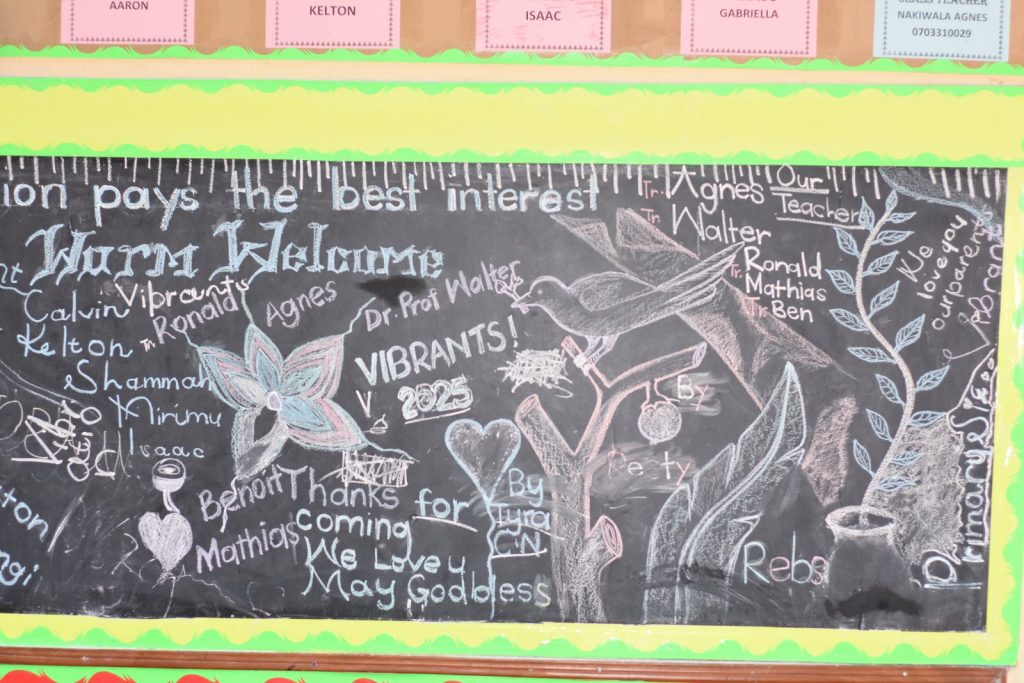 AARON
KELTON
ISAAC
GABRIELLA
CLASS TEACHER
NAKIWALA AGNES
0703310029
ion pays the best interest
Warm Welcome
Vibrants
Calvin
Kelton
Shammah
Mirimu
Isaac
Tr. Ronald
Agnes
Dr. Prof Walter
VIBRANTS!
2025
V
Tr. Agnes
Tr. Walter
Tr. Ronald
Mathias
Tr. Ben
Our
Teachers
We
love you
our parents
Vibrant
Primary Six
Benon
Mathias
Thanks for
coming
We Love y
May God bless
By
Tyra
C.N
By
Pesty
Rebs